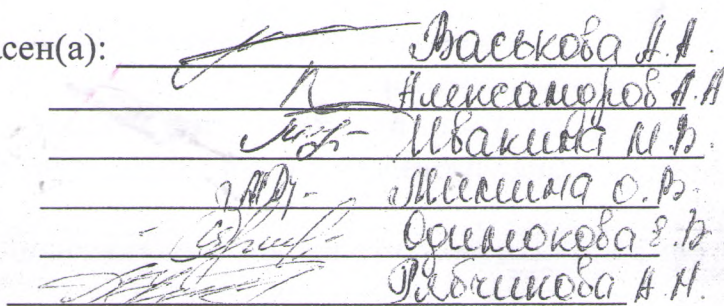 асен(а): Васькова А.А.
Александров А.А
Ивакина И.В.
Мишина О.В.
Одинокова Е.В
Рябчикова А.Н.